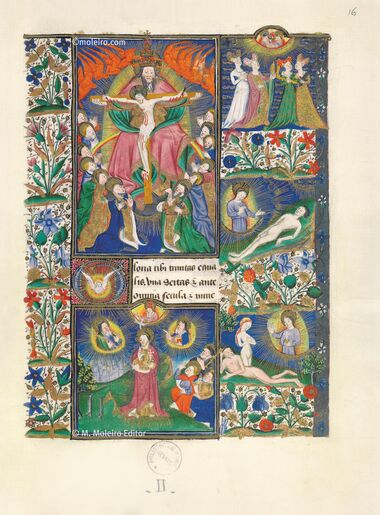 16
© moleiro.com
loria tibi trinitas equa
lis, vna deitas & ante
omnia secula & nunc
© M. Moleiro Editor
- II -